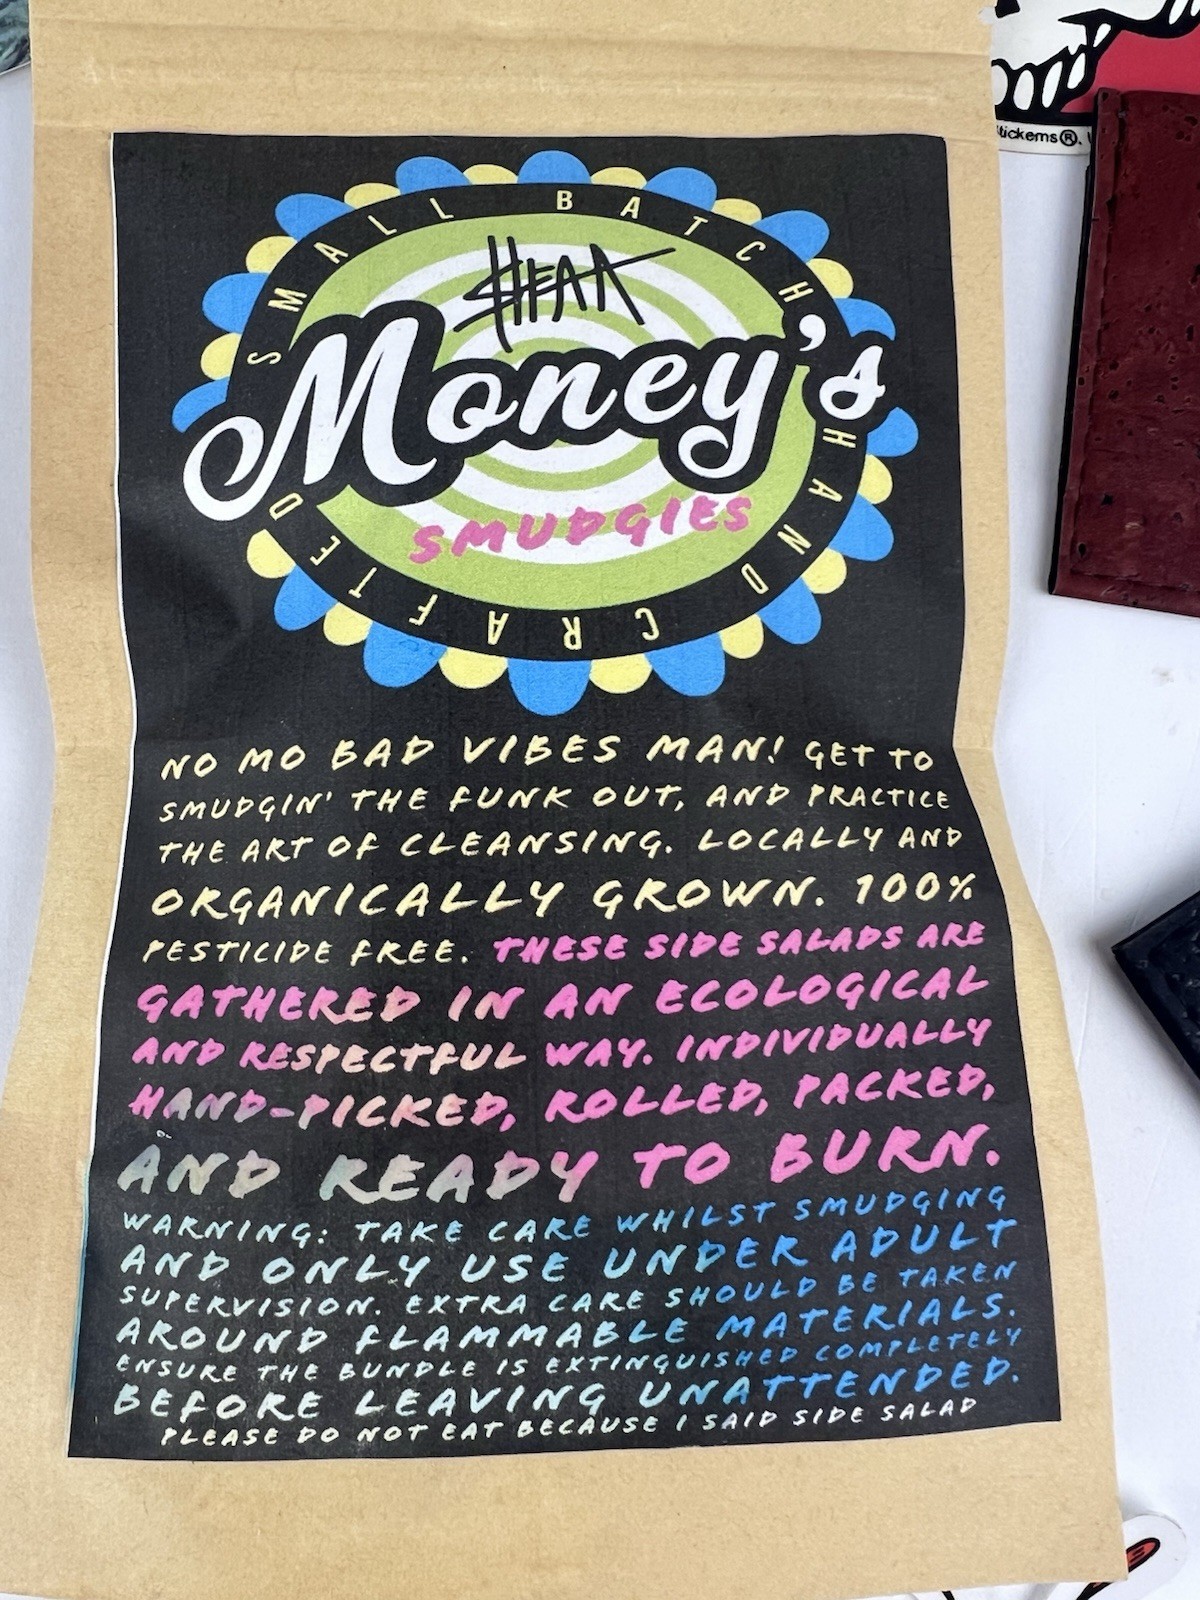 SMALL BATCH
$HEAR
Money's
SMUDGIES
HAND CRAFTED
NO MO BAD VIBES MAN! GET TO
SMUDGIN' THE FUNK OUT, AND PRACTICE
THE ART OF CLEANSING. LOCALLY AND
ORGANICALLY GROWN. 100%
PESTICIDE FREE. THESE SIDE SALADS ARE
GATHERED IN AN ECOLOGICAL
AND RESPECTFUL WAY. INDIVIDUALLY
HAND-PICKED, ROLLED, PACKED,
AND READY TO BURN.
WARNING: TAKE CARE WHILST SMUDGING
AND ONLY USE UNDER ADULT
SUPERVISION. EXTRA CARE SHOULD BE TAKEN
AROUND FLAMMABLE MATERIALS.
ENSURE THE BUNDLE IS EXTINGUISHED COMPLETELY
BEFORE LEAVING UNATTENDED.
PLEASE DO NOT EAT BECAUSE I SAID SIDE SALAD